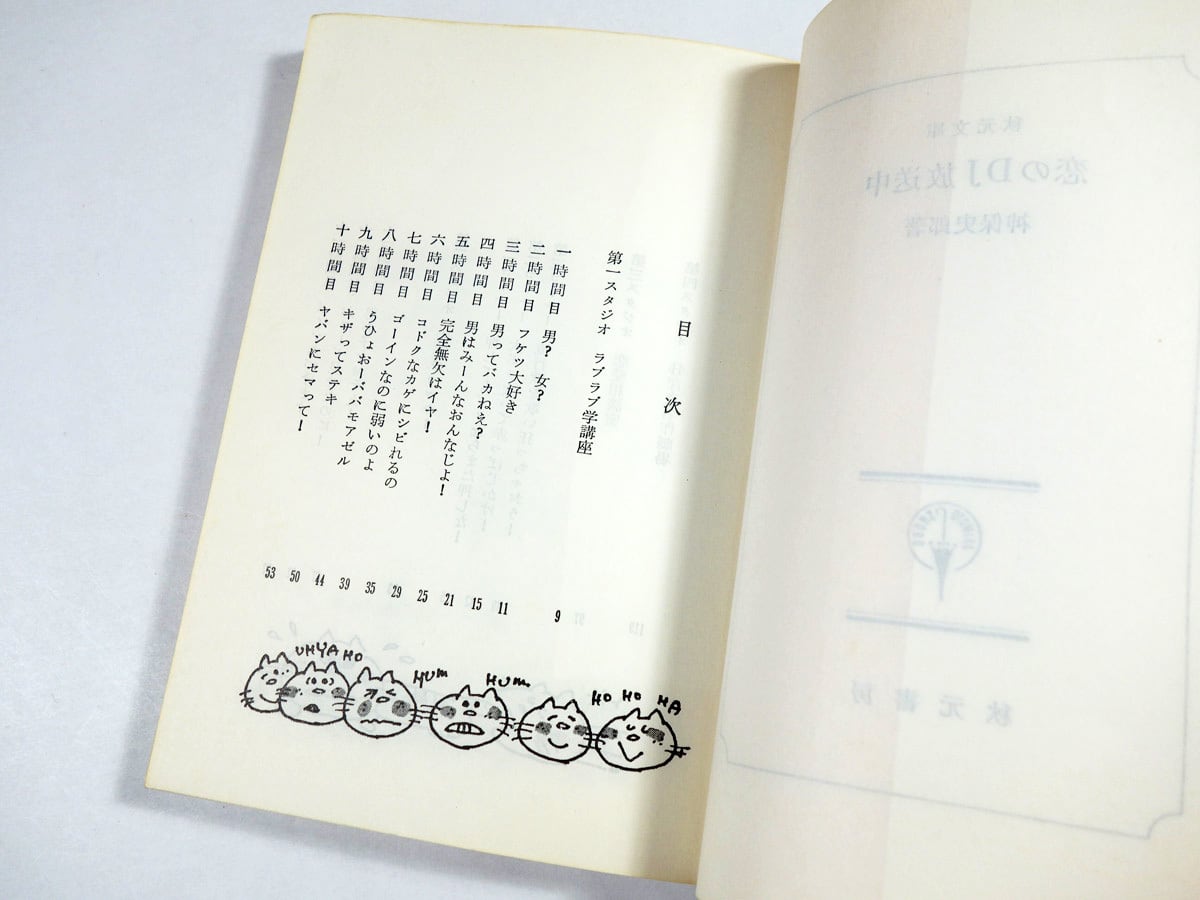 秋元文庫
恋のDJ放送中
神保史郎著
秋元書房
目次
第一スタジオ ラブラブ学講座 9
一時間目 男? 女? 11
二時間目 フケツ大好き 15
三時間目 男ってバカねえ? 21
四時間目 男はみーんなおんなじよ! 25
五時間目 完全無欠はイヤ! 29
六時間目 コドクなカゲにシビれるの 35
七時間目 ゴーインなのに弱いのよ 39
八時間目 うひょおーババモアゼル 44
九時間目 キザってステキ 50
十時間目 ヤバンにセマって! 53
UHYA HO
HUM
HUM
HO HO HA